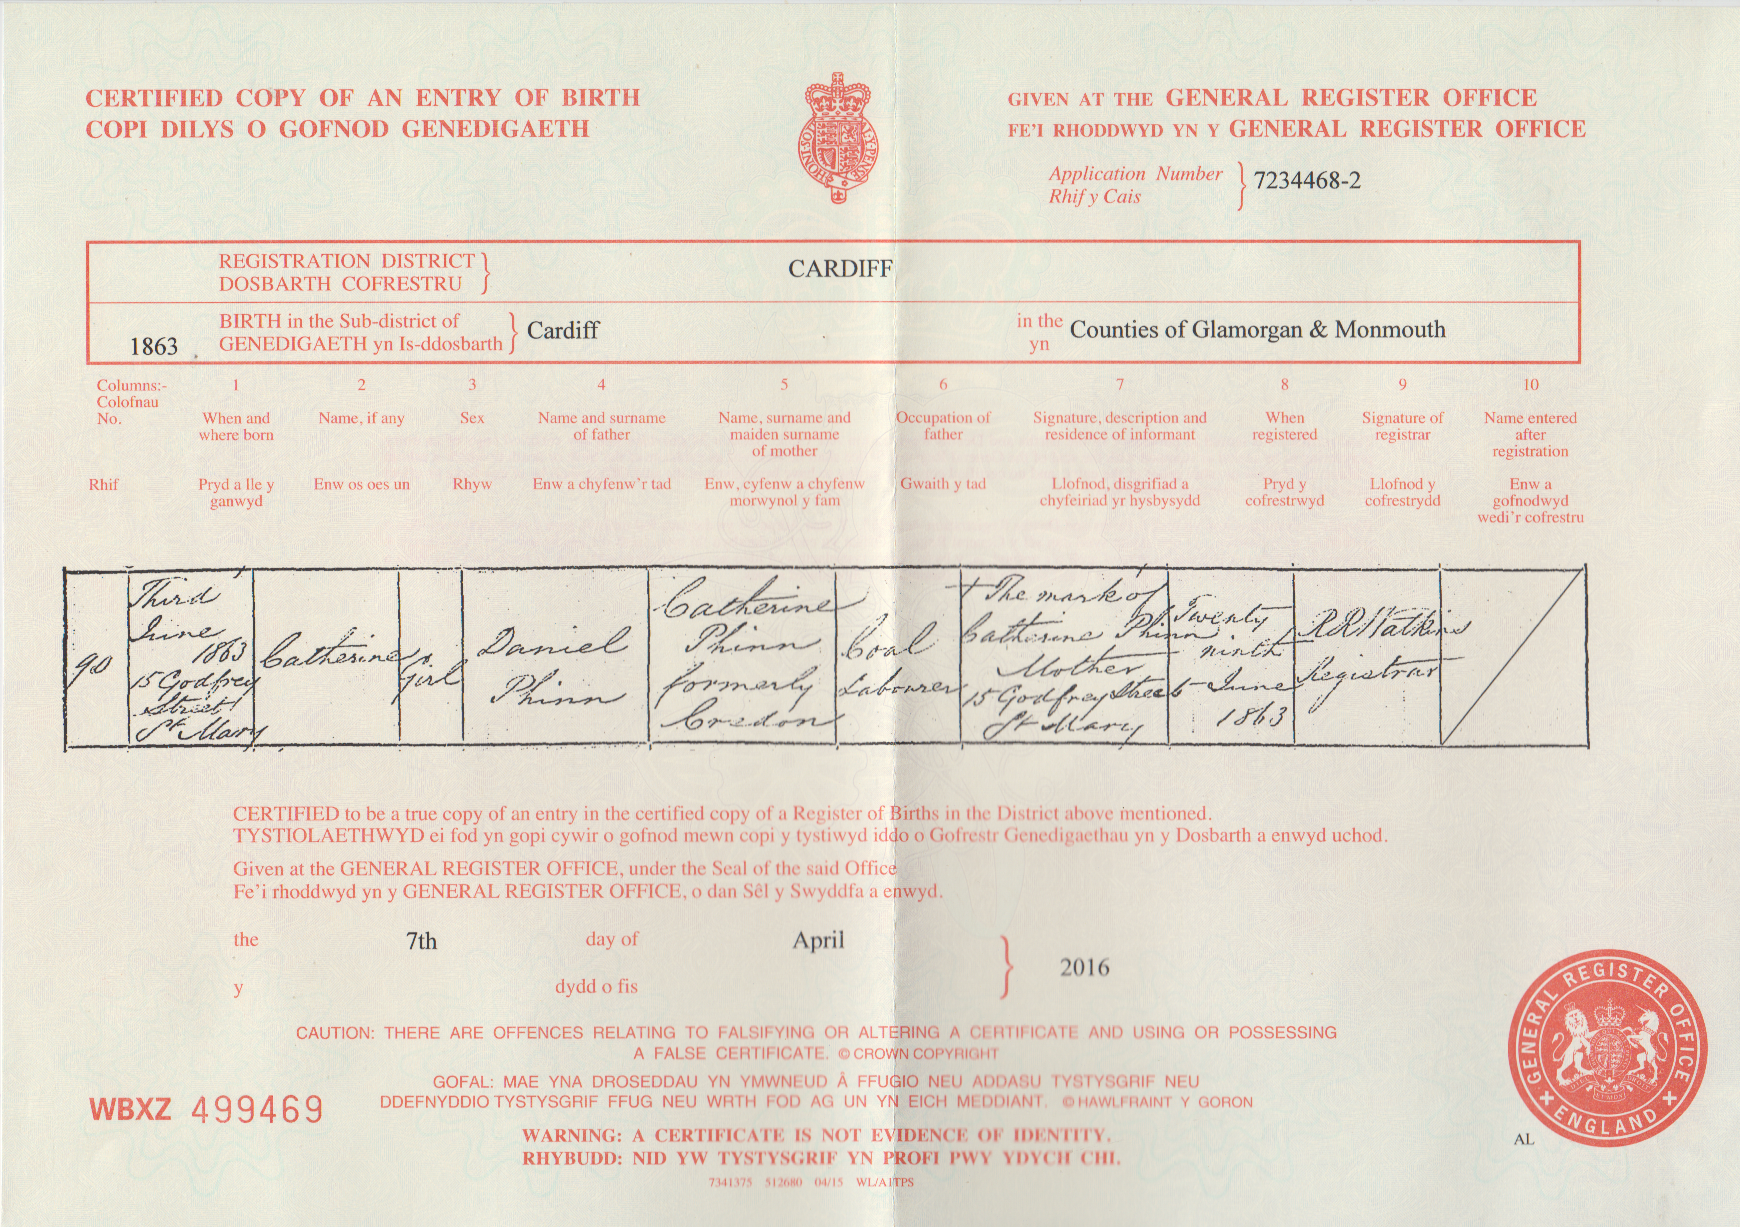 CERTIFIED COPY OF AN ENTRY OF BIRTH
COPI DILYS O GOFNOD GENEDIGAETH
HONI·SOIT
AL·Y·PENSE
GIVEN AT THE GENERAL REGISTER OFFICE
FE'I RHODDWYD YN Y GENERAL REGISTER OFFICE
Application Number
Rhif y Cais
7234468-2
REGISTRATION DISTRICT
DOSBARTH COFRESTRU
CARDIFF
1863
BIRTH in the Sub-district of
GENEDIGAETH yn Is-ddosbarth
Cardiff
in the
yn
Counties of Glamorgan & Monmouth
Columns:-
Colofnau
No.
Rhif
1
When and
where born
Pryd a lle y
ganwyd
2
Name, if any
Enw os oes un
3
Sex
Rhyw
4
Name and surname
of father
Enw a chyfenw'r tad
5
Name, surname and
maiden surname
of mother
Enw, cyfenw a chyfenw
morwynol y fam
6
Occupation of
father
Gwaith y tad
7
Signature, description and
residence of informant
Llofnod, disgrifiad a
chyfeiriad yr hysbysydd
8
When
registered
Pryd y
cofrestrwyd
9
Signature of
registrar
Llofnod y
cofrestrydd
10
Name entered
after
registration
Enw a
gofnodwyd
wedi'r cofrestru
90
Third
June
1863
15 Godfrey
Street
St Mary
Catherine
girl
Daniel
Phinn
Catherine
Phinn
formerly
Credon
Coal
Labourer
+ The mark of
Catherine Phinn
Mother
15 Godfrey Street
St Mary
Twenty
ninth
June
1863
R R Watkins
Registrar
CERTIFIED to be a true copy of an entry in the certified copy of a Register of Births in the District above mentioned.
TYSTIOLAETHWYD ei fod yn gopi cywir o gofnod mewn copi y tystiwyd iddo o Gofrestr Genedigaethau yn y Dosbarth a enwyd uchod.
Given at the GENERAL REGISTER OFFICE, under the Seal of the said Office
Fe'i rhoddwyd yn y GENERAL REGISTER OFFICE, o dan Sêl y Swyddfa a enwyd.
the 7th day of April
2016
y dydd o fis
CAUTION: THERE ARE OFFENCES RELATING TO FALSIFYING OR ALTERING A CERTIFICATE AND USING OR POSSESSING
A FALSE CERTIFICATE. © CROWN COPYRIGHT
GOFAL: MAE YNA DROSEDDAU YN YMWNEUD Â FFUGIO NEU ADDASU TYSTYSGRIF NEU
DDEFNYDDIO TYSTYSGRIF FFUG NEU WRTH FOD AG UN YN EICH MEDDIANT. © HAWLFRAINT Y GORON
WARNING: A CERTIFICATE IS NOT EVIDENCE OF IDENTITY.
RHYBUDD: NID YW TYSTYSGRIF YN PROFI PWY YDYCH CHI.
7341375 512680 04/15 WL/A1TPS
WBXZ 499469
GENERAL REGISTER OFFICE
ENGLAND
AL